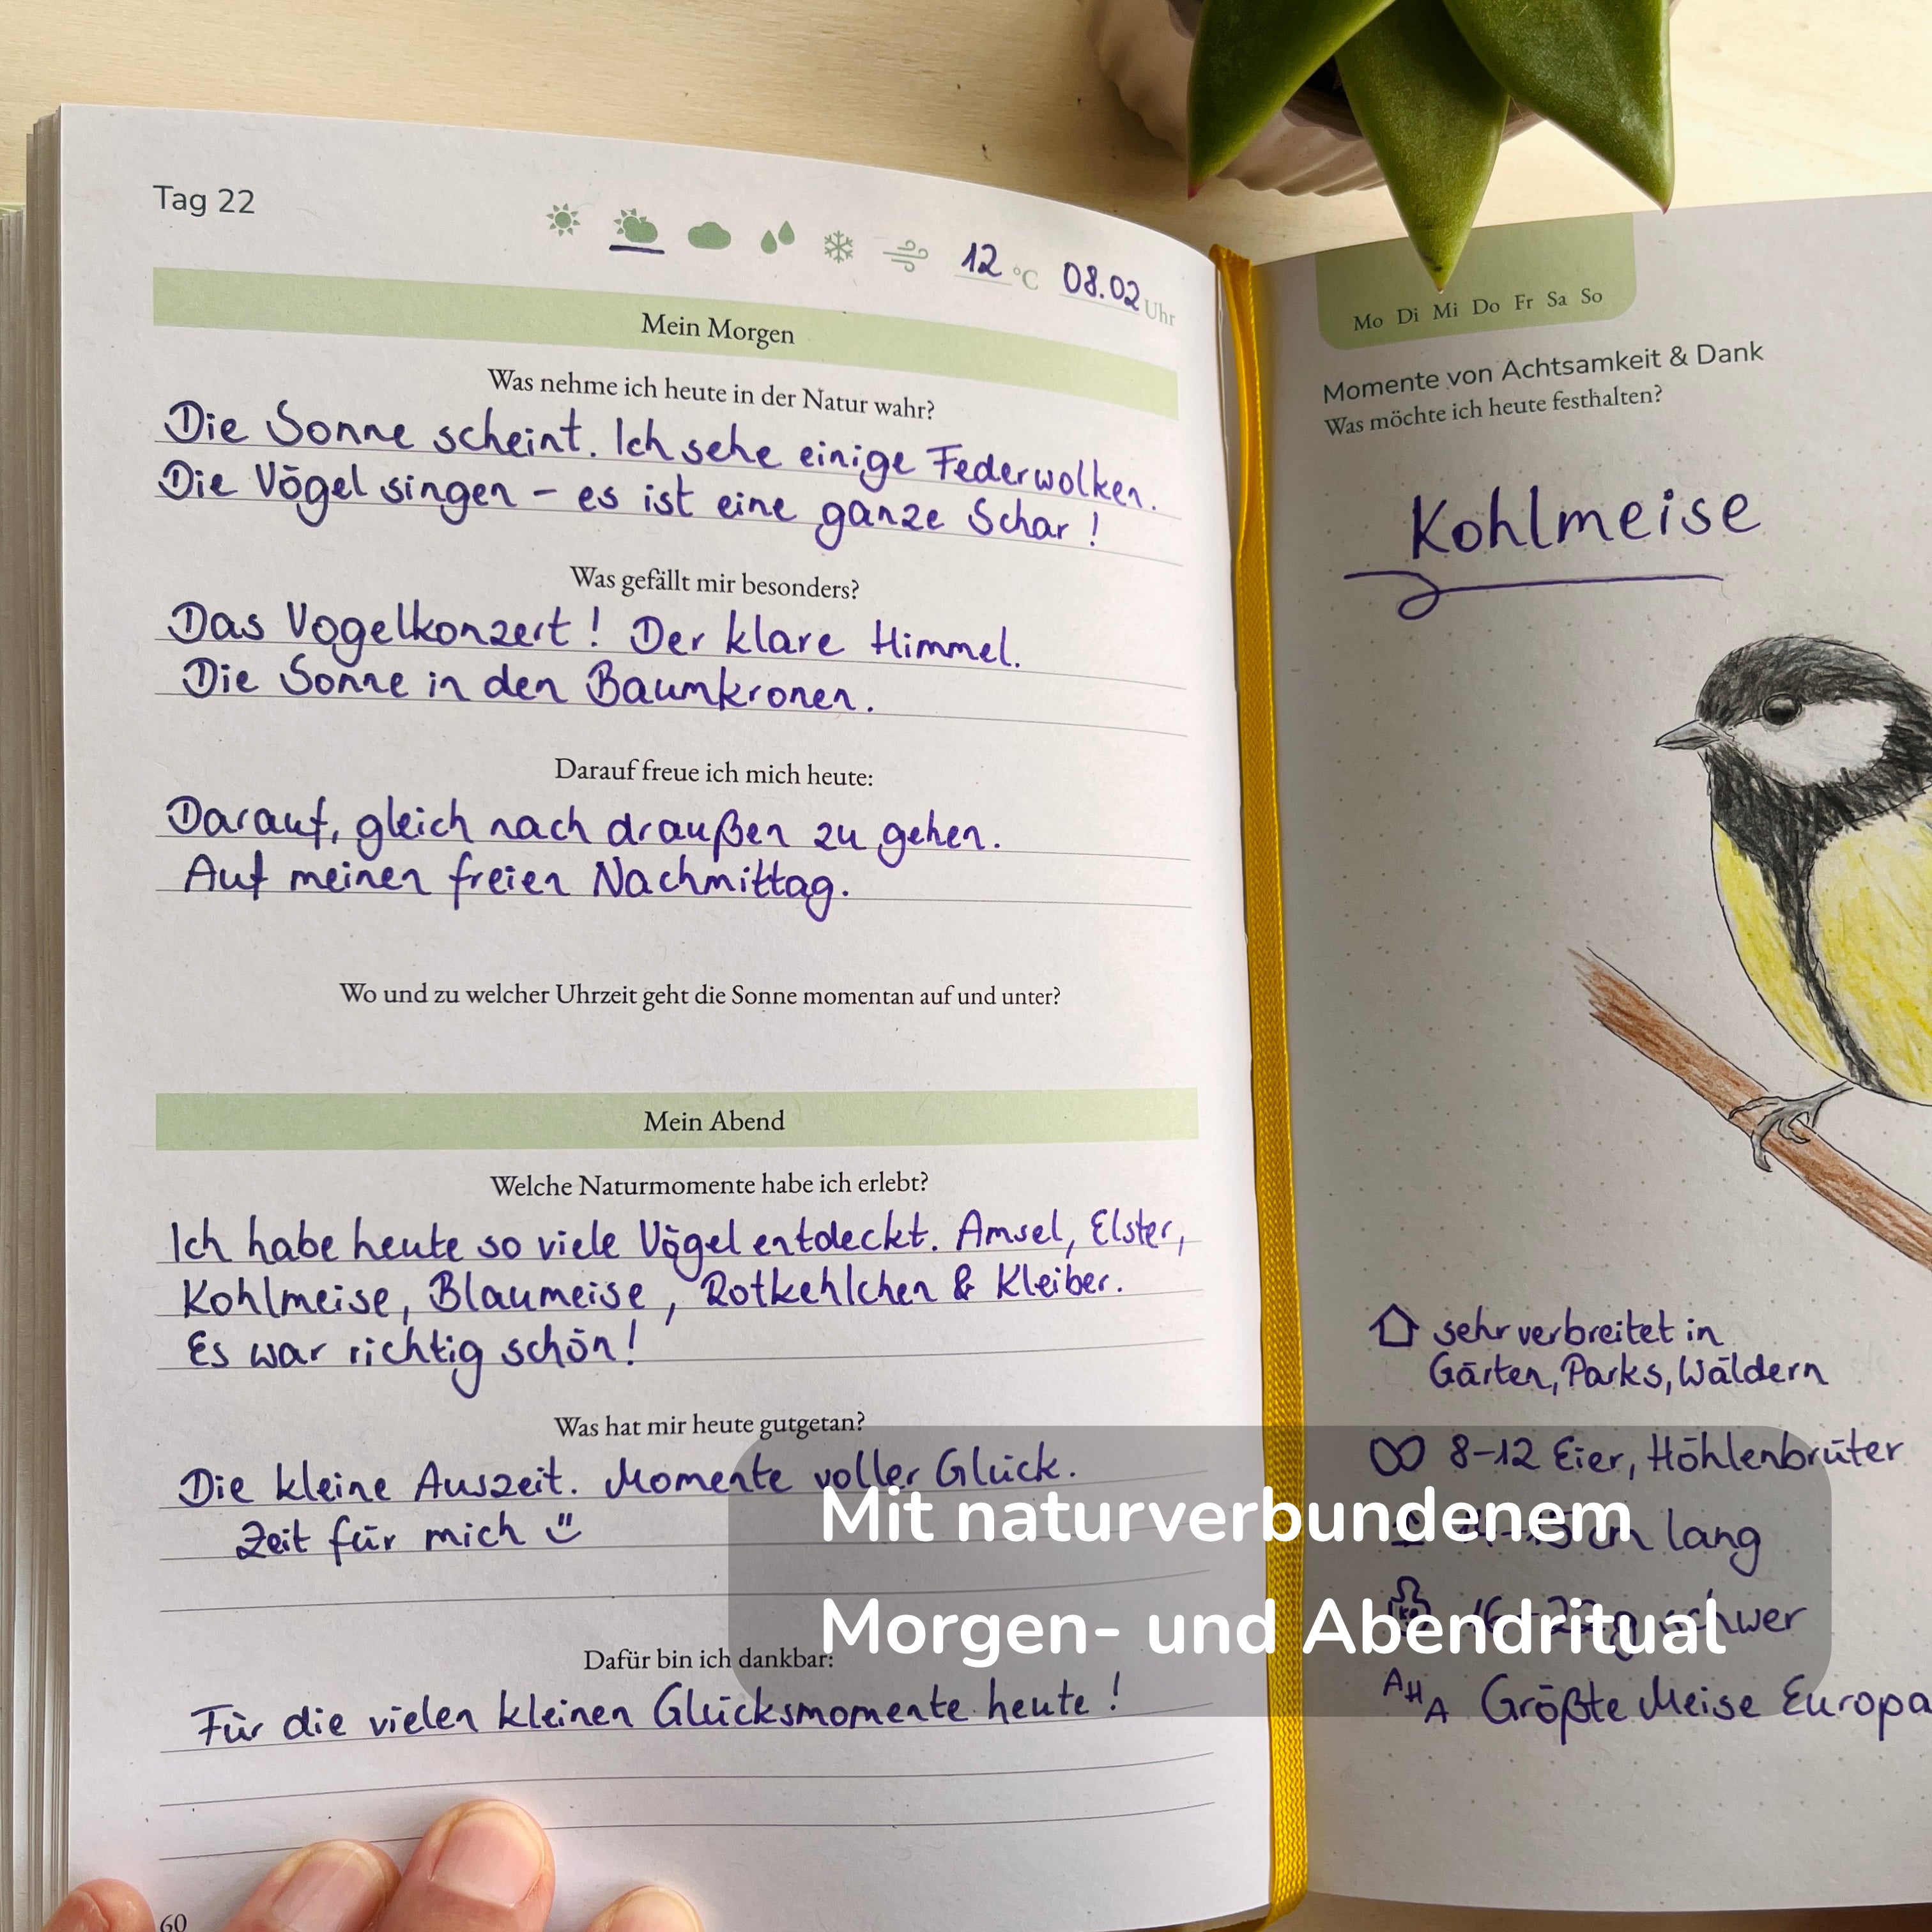 Tag 22
12 °C 08.02 Uhr
Mein Morgen
Was nehme ich heute in der Natur wahr?
Die Sonne scheint. Ich sehe einige Federwolken.
Die Vögel singen - es ist eine ganze Schar!
Was gefällt mir besonders?
Das Vogelkonzert! Der klare Himmel.
Die Sonne in den Baumkronen.
Darauf freue ich mich heute:
Darauf, gleich nach draußen zu gehen.
Auf meinen freien Nachmittag.
Wo und zu welcher Uhrzeit geht die Sonne momentan auf und unter?
Mein Abend
Welche Naturmomente habe ich erlebt?
Ich habe heute so viele Vögel entdeckt. Amsel, Elster,
Kohlmeise, Blaumeise, Rotkehlchen & Kleiber.
Es war richtig schön!
Was hat mir heute gutgetan?
Die kleine Auszeit. Momente voller Glück.
Zeit für mich
Dafür bin ich dankbar:
Für die vielen kleinen Glücksmomente heute!
60
Mo Di Mi Do Fr Sa So
Momente von Achtsamkeit & Dank
Was möchte ich heute festhalten?
Kohlmeise
sehr verbreitet in
Gärten, Parks, Wäldern
8-12 Eier, Höhlenbrüter
cm lang
schwer
AHA Größte Meise Europa
Mit naturverbundenem
Morgen- und Abendritual